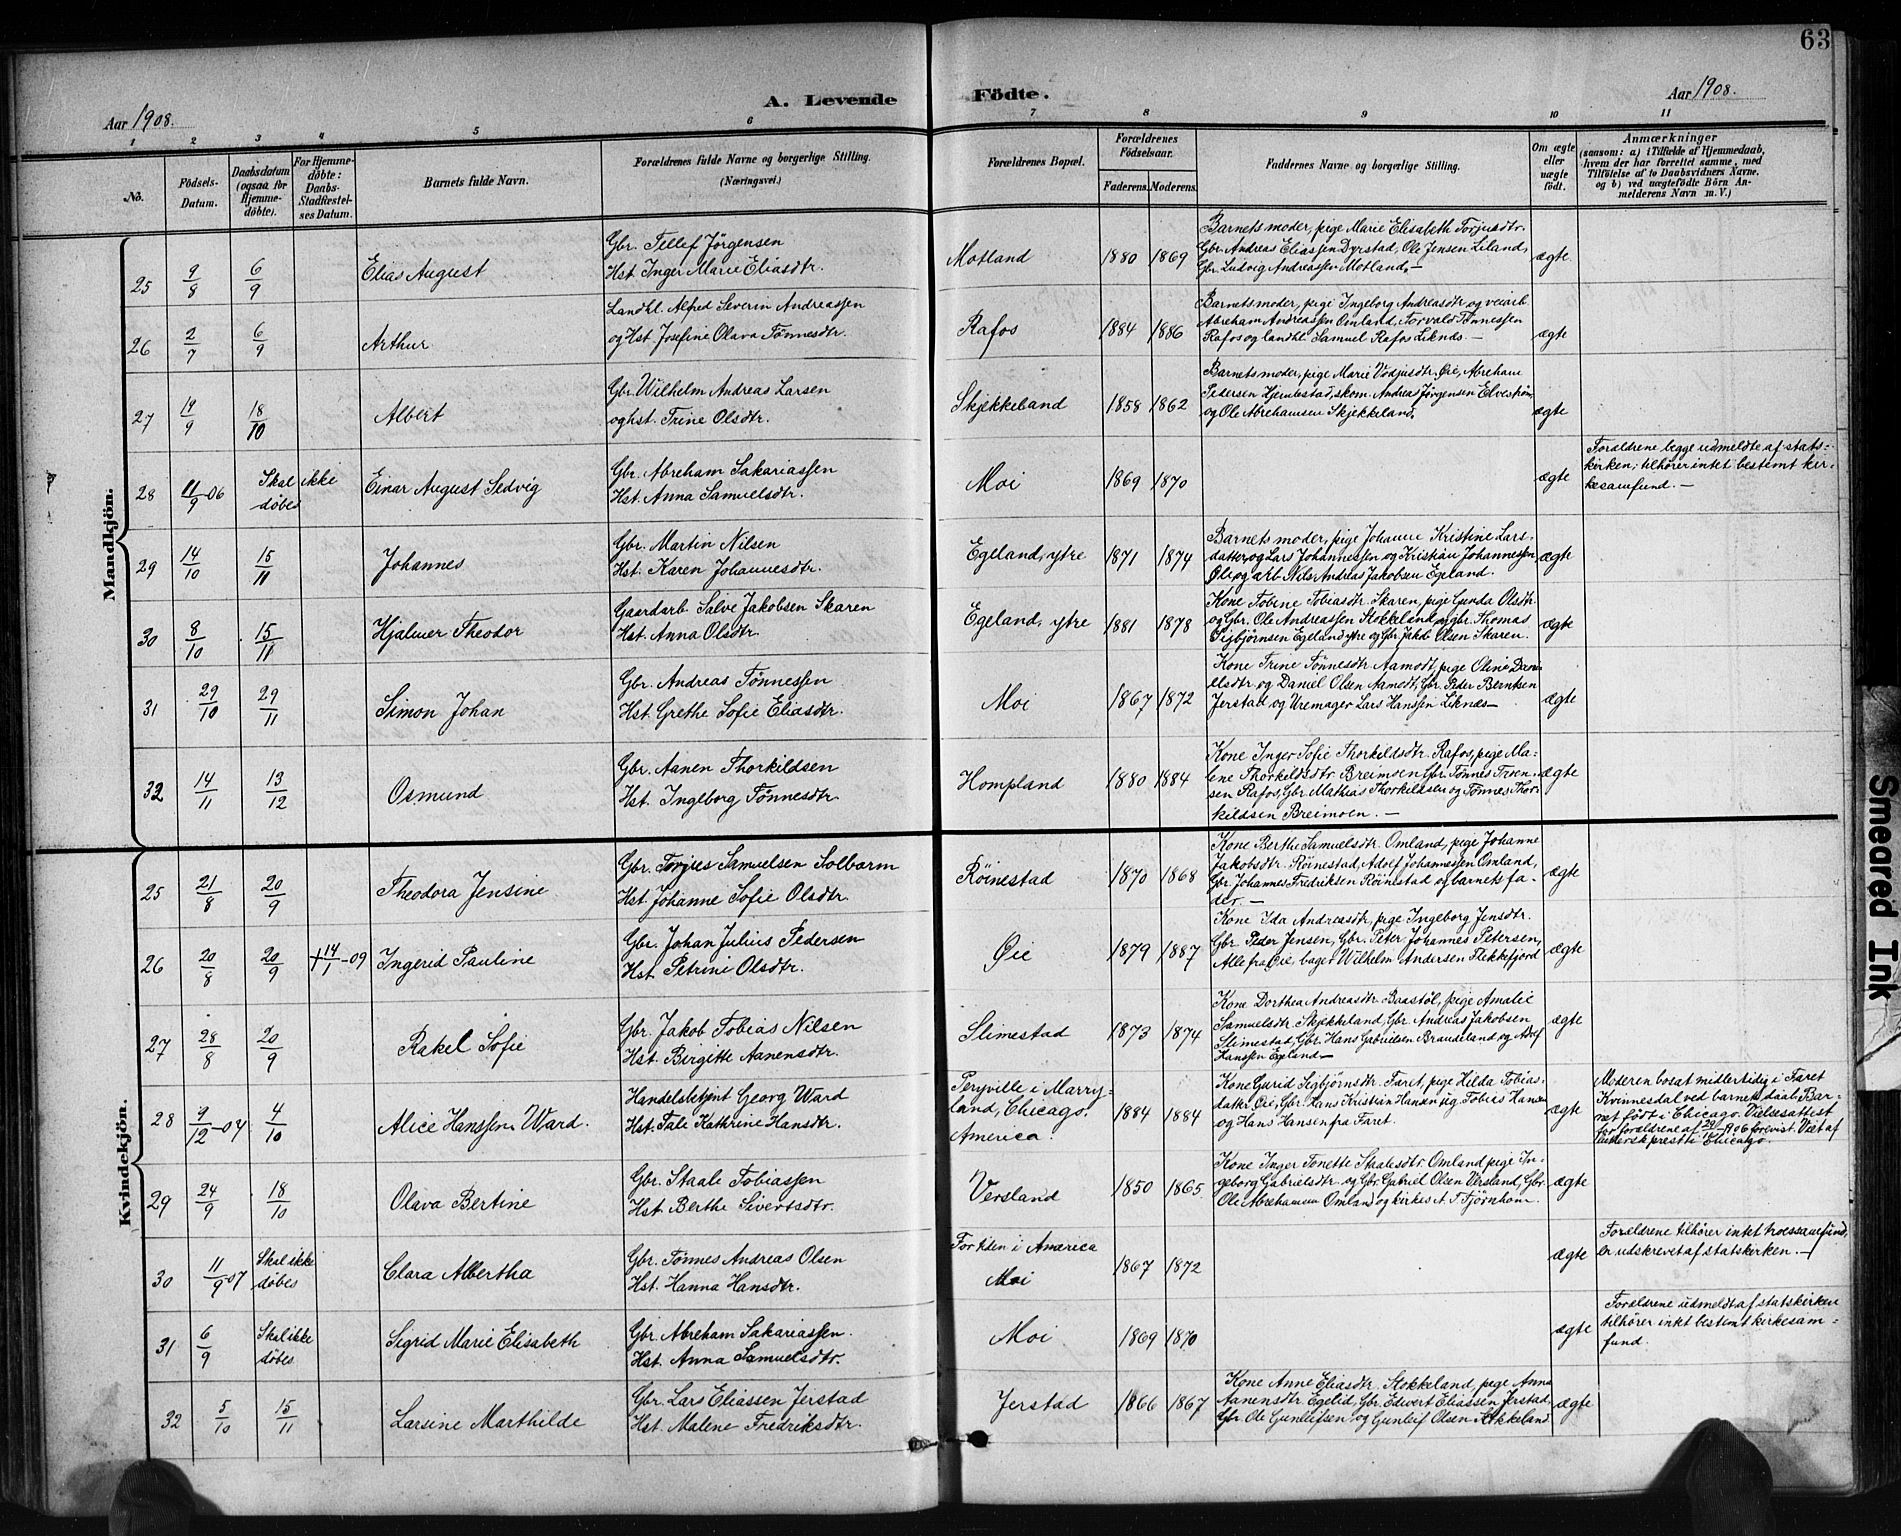 63
Aar 1908.
A. Levende Födte.
Aar 1908.
1 2 3 4 5 6 7 8 9 10 11
No.
Födsels-
Datum.
Daabsdatum
(ogsaa for
Hjemme-
döbte).
For Hjemme-
döbte:
Daabs-
Stadfæstel-
ses Datum.
Barnets fulde Navn.
Forældrenes fulde Navne og borgerlige Stilling.
(Næringsvei.)
Forældrenes Bopæl.
Forældrenes
Födselsaar.
Faderens. Moderens.
Faddernes Navne og borgerlige Stilling.
Om ægte
eller
uægte
födt.
Anmærkninger
(saasom: a) i Tilfælde af Hjemmedaab,
hvem der har forrettet samme, med
Tilföielse af to Daabsvidners Navne,
og b) ved uægtefödte Börn An-
melderens Navn m. V.)
Mandkjön.
25 9/8 6/9 Elias August
Gbr. Tellef Jörgensen
Hst. Inger Marie Eliasdtr.
Motland 1880 1869
Barnets moder, pige Marie Elisabeth Torjusdtr.
Gbr. Andreas Eliassen Dyrstad, Ole Jensen Liland,
Gbr. Ludvig Andreassen Motland. —
ægte
26 2/7 6/9 Arthur
Landhl. Alfred Severin Andreassen
og Hst. Josefine Olava Tönnesdtr.
Rafos 1884 1886
Barnets moder, pige Ingeborg Andreasdtr og veiarb.
Abreham Andreassen Omland, Torvald Tönnessen
Rafos og landhl. Samuel Rafos Liknes. —
ægte
27 19/9 18/10 Albert
Gbr. Wilhelm Andreas Larsen
og hst. Trine Olsdtr.
Skjekkeland 1858 1862
Barnets moder, pige Marie Vödjusdtr. Øie, Abreham
Pedersen Hjembestad, skom. Andreas Jörgensen Elveströn,
og Ole Abrehamsen Skjekkeland,
ægte
28 11/9-06 Skal ikke
döbes
Einar August Sedvig
Gbr. Abreham Sakariassen
Hst. Anna Samuelsdtr.
Moi 1869 1870
ægte
Forældrene begge udmeldte af stats-
kirken; tilhører intet bestemt kir-
kesamfund. —
29 14/10 15/11 Johannes
Gbr. Martin Nilsen
Hst. Karen Johannesdtr.
Egeland, ytre 1871 1874
Barnets moder, pige Johanne Kristine Lars-
datter, og Lars Johannessen og Kristian Johannessen
Øie og arb Nils Andreas Jakobsen Egeland.
ægte
30 8/10 15/11 Hjalmer Theodor
Gaardarb Salve Jakobsen Skaren
Hst. Anna Olsdtr.
Egeland, ytre 1881 1878
Kone Tobine Tobiasdtr. Skaren, pige Gunda Olsdtr.
og Gbr. Ole Andreassen Stokkeland, og gbr. Thomas
Sigbjørnsen Egeland ytre og Gbr. Jakob Olsen Skaren.
ægte
31 29/10 29/11 Simon Johan
Gbr. Andreas Tönnessen
Hst. Grethe Sofie Eliasdtr.
Moi 1867 1872
Kone Trine Tönnesdtr Aamodt, pige Oline Dani-
elsdtr og Daniel Olsen Aamodt, Gbr. Peder Berntsen
Jerstad og Uremager Lars Hanssen Liknes —
ægte
32 14/11 13/12 Osmund
Gbr. Aanen Thorkildsen
Hst. Ingeborg Tönnesdtr.
Hompland 1880 1884
Kone Inger Sofie Thorkildsdtr. Rafos, pige Ma-
lene Thorkildsdtr. Breimoen, Gbr. Tönnes Troen-
sen Rafos, Gbr. Mathias Thorkildsen og Tönnes Thor-
kildsen Breimoen. —
ægte
Kvindekjön.
25 21/8 20/9 Theodora Jensine
Gbr. Torjus Samuelsen Solbarm
Hst. Johanne Sofie Olsdtr.
Röinestad 1870 1868
Kone Berthe Samuelsdtr. Omland, pige Johanne
Jakobsdtr. Röinestad, Adolf Johannessen Omland,
Gbr. Johannes Fredriksen Röinestad og barnets fa-
der. —
ægte
26 20/8 20/9 +14/1-09 Ingerid Pauline
Gbr. Johan Julius Pedersen
Hst. Petrine Olsdtr.
Øie 1879 1887
Kone Ida Andreasdtr, pige Ingeborg Jensdtr.
Gbr. Peder Jensen, Gbr. Peter Johannes Petersen,
Alle fra Øie, bager Wilhelm Andersen Flekkefjord
ægte
27 28/8 20/9 Rakel Sofie
Gbr. Jakob Tobias Nilsen
Hst. Birgitte Aanensdtr.
Slimestad 1873 1874
Kone Dorthea Andreasdtr. Baastöl, pige Amalie
Samuelsdtr. Skjekkeland, Gbr Andreas Jakobsen
Slimestad, Gbr. Hans Gabrielsen Braudeland og Adolf
Hanssen Egeland —
ægte
28 9/12-04 4/10 Alice Hanssen Ward.
Handelsbetjent Georg Ward
Hst. Tale Kathrine Hansdtr.
Peryville i Marry-
land, Chicago.
America.
1884 1884
Kone Gurid Sigbjörnsdtr. Faret, pige Hilda Tobias-
datter Øie, Gbr. Hans Kristian Hansen og Tobias Hansen
og Hans Hansen fra Faret.
ægte
Moderen bosat midlertidig i Faret
Kvinnesdal ved barnets daab. Bar-
net födt i Chicago. Vielsesattest
for forældrene af 1906 forevist. Viet af
luthersk prest i Chicago.
29 24/9 18/10 Olava Bertine
Gbr. Staale Tobiassen
Hst. Berthe Sivertsdtr.
Versland 1850 1865
Kone Inger Tonette Staalesdtr. Omland, pige In-
geborg Gabrielsdtr og Gbr. Gabriel Olsen Versland, Gbr.
Ole Abrehamsen Omland og kirkes A. T. Tjörnhom.
ægte
30 11/9 07 Skal ikke
döbes
Clara Albertha
Gbr. Tönnes Andreas Olsen
Hst. Hanna Hansdtr.
For tiden i America
Moi
1867 1872
ægte
Forældrene tilhører intet troessamfund,
er udskrevet af statskirken. —
31 6/9 Skal ikke
döbes
Sigrid Marie Elisabeth
Gbr. Abreham Sakariassen.
Hst. Anna Samuelsdtr.
Moi 1869 1870
ægte
Forældrene udmeldt af statskirken
tilhører intet bestemt kirkesam-
fund.
32 5/10 15/11 Larsine Marthilde
Gbr. Lars Eliassen Jerstad
Hst. Malene Fredriksdtr.
Jerstad 1866 1867
Kone Anne Eliasdtr. Stokkeland, pige Anna
Aanensdtr. Egelid, Gbr. Edvert Eliassen Jerstad,
Gbr. Ole Gunleifsen og Gunleif Olsen Stokkeland
ægte
Smeared Ink